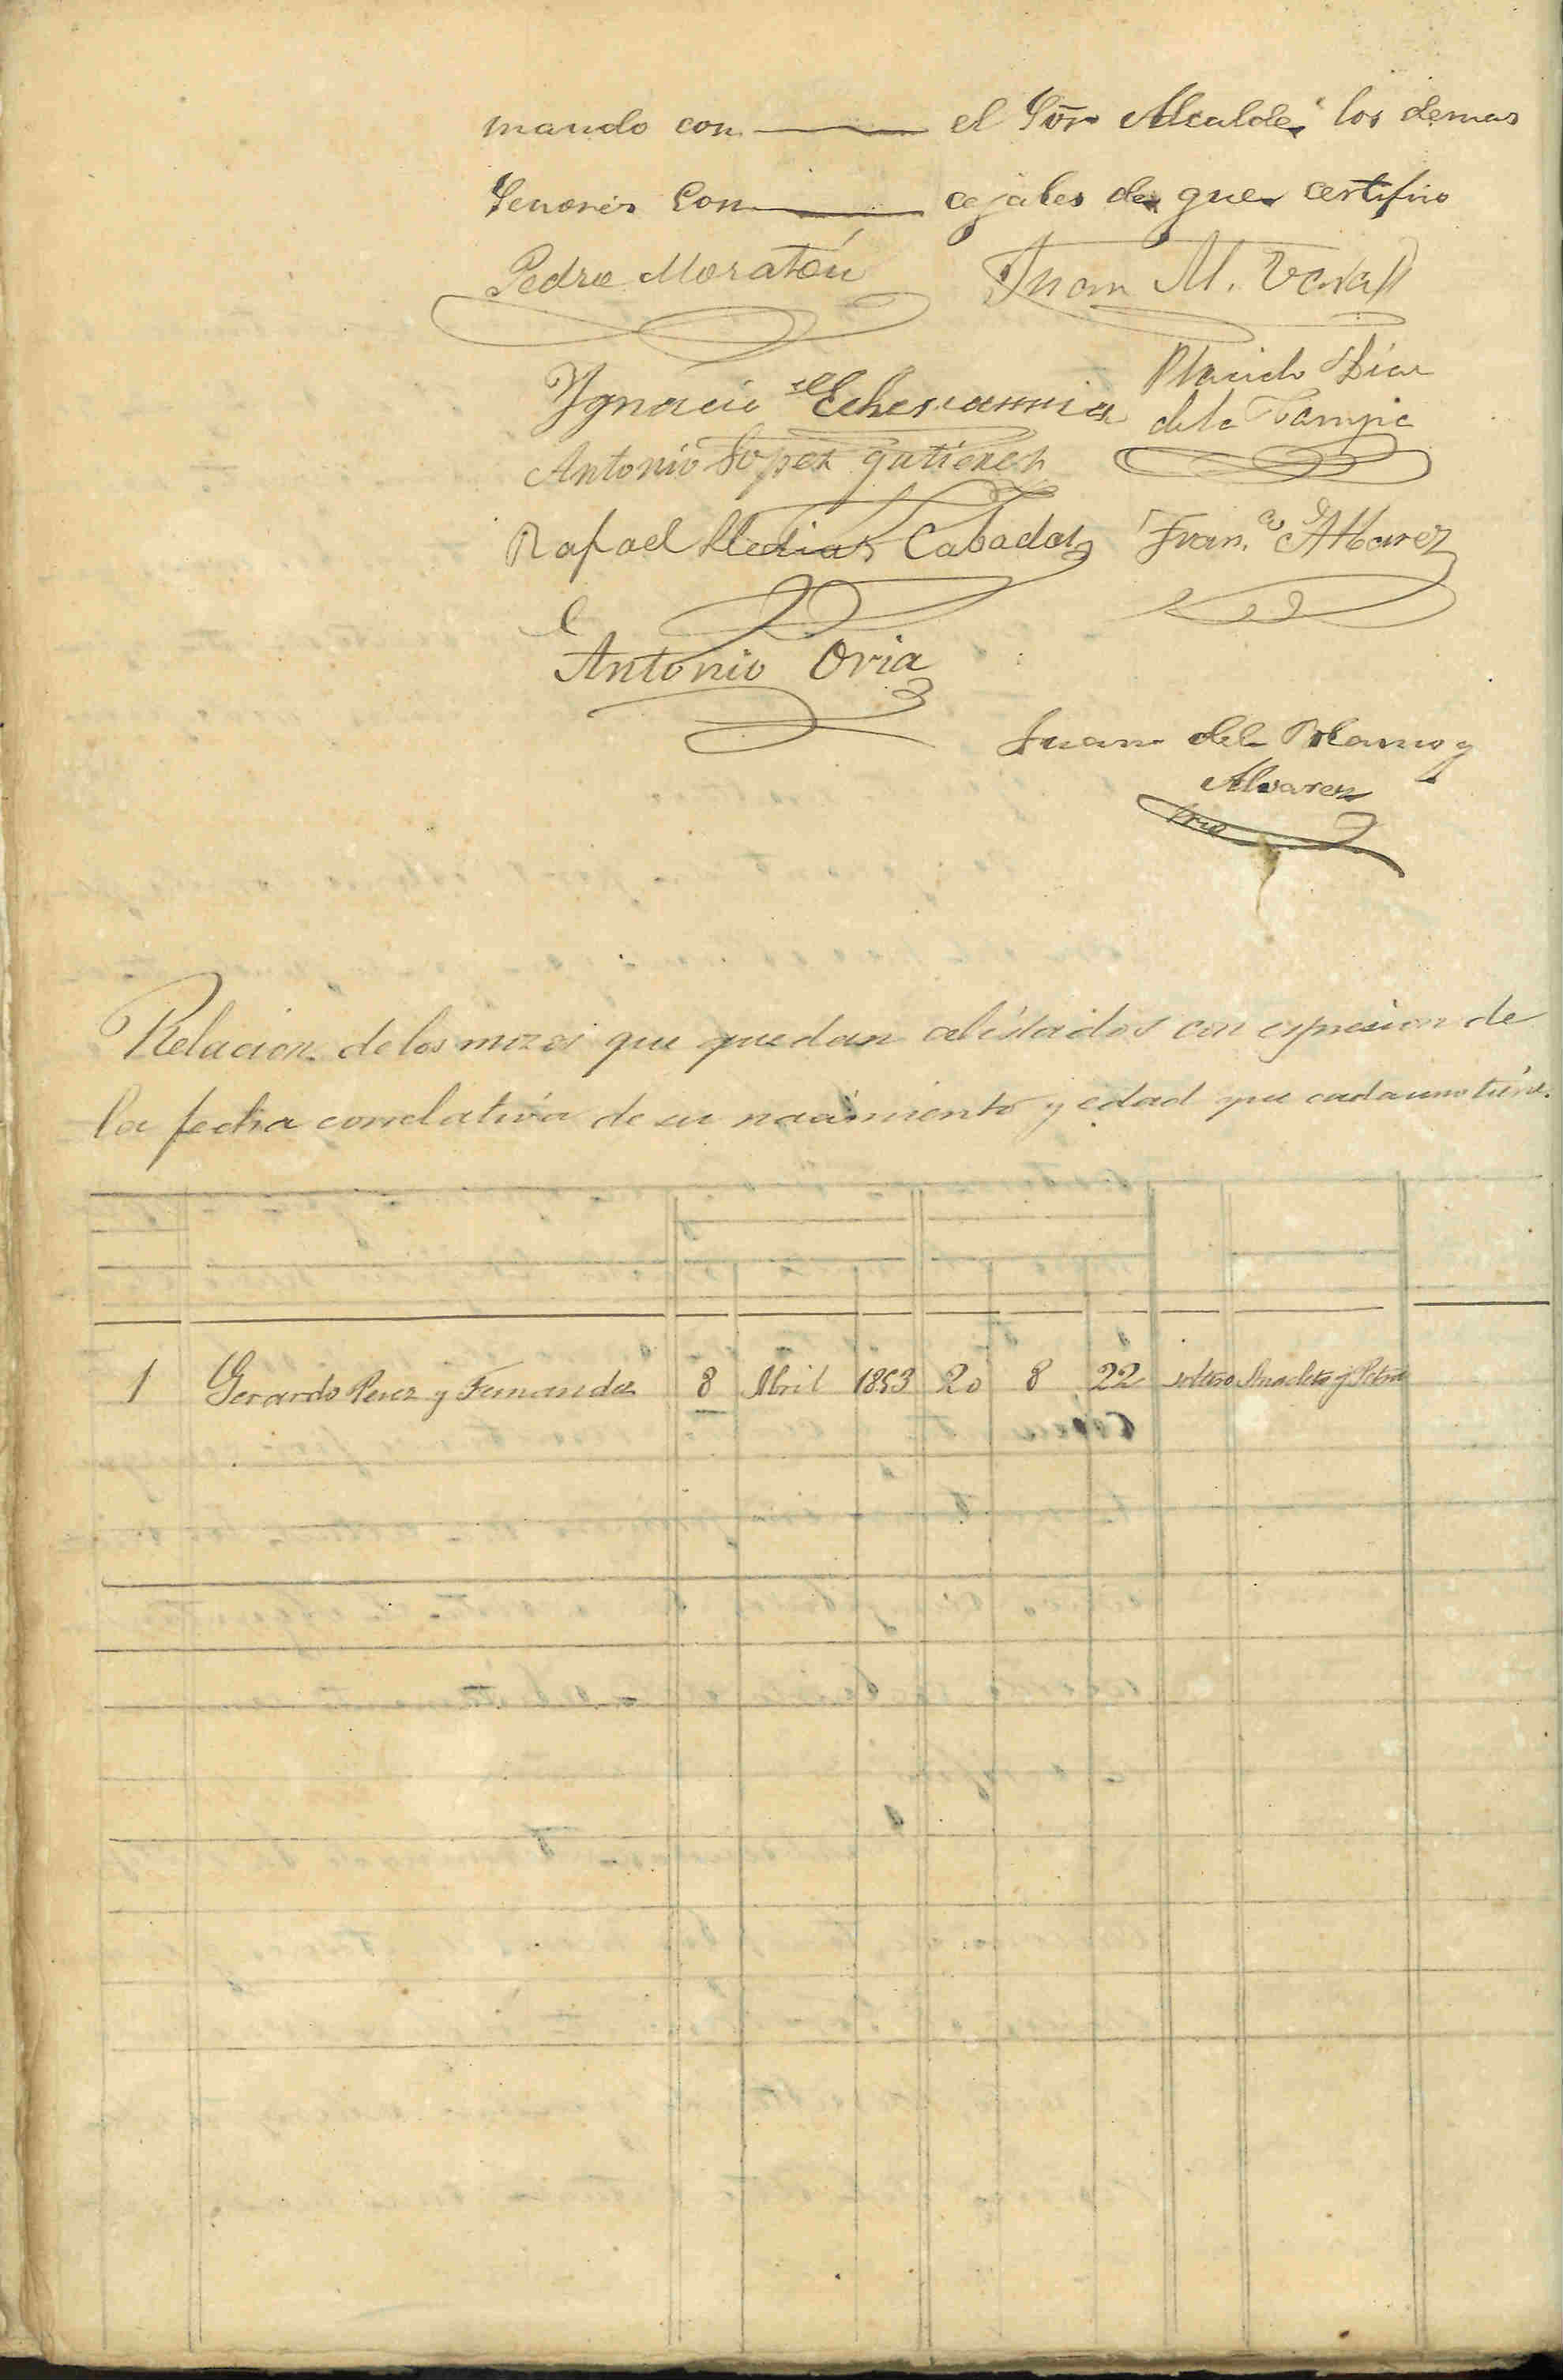 mando con ——— el Sõr Alcalde i los demas
Señores Con ——— cejales de que certifico
Pedro Moratón
Juan M.
Ygnacio Echevarria
Placido Diaz
de la Campa
Antonio Lopez gutierez
Rafael Cabadas
Fran.co Alvarez
Antonio Oria
Juan del y
Alvarez
Srio
Relacion de los mozos que quedan alistados con espresion de
la fecha correlativa de su nacimiento y edad que cada uno tiene.
1 Gerardo Perez y Fernandez 8 Abril 1853 20 8 22 soltero Anacleto y Petra